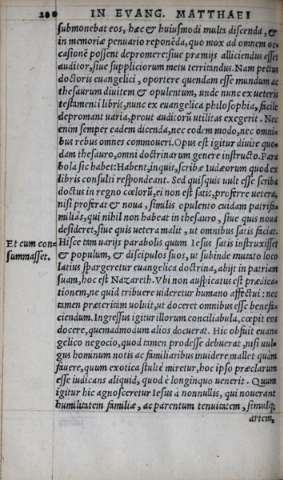 200 IN EVANG. MATTHAEI
submonebat eos, hæc & huiusmodi multa discenda, &
in memoriæ penuario reponēda, quo mox ad omnem oc-
casionē possent depromere, siue præmijs alliciendus esset
auditor, siue suppliciorum metu territandus. Nam pectus
doctoris euangelici, oportere quendam esse mundum ac
thesaurum diuitem & opulentum, unde nunc ex ueteris
testamenti libris, nunc ex euangelica philosophia, facile
depromant uaria, prout auditorū utilitas exegerit. Nec
enim semper eadem dicenda, nec eodem modo, nec omni-
bus rebus omnes commoueri. Opus est igitur diuite quo-
dam thesauro, omni doctrinarum genere instructo. Para
bola sic habet: Habent, inquit, scribæ Iudæorum quod ex
libris consulti respondeant. Sed quisquis uult esse scriba
doctus in regno cœlorū, ei non est satis, proferre uetera,
nisi proferat & noua, similis opulento cuidam patrifa-
miliâs, qui nihil non habeat in thesauro, siue quis noua
desideret, siue quis uetera malit, ut omnibus satis faciat.
Et cum con=
summasset.
Hisce tam uarijs parabolis quum Iesus satis instruxisset
& populum, & discipulos suos, ut subinde mutato loco
latius spargeretur euangelica doctrina, abijt in patriam
suam, hoc est Nazareth. Vbi non auspicatus est prædica-
tionem, ne quid tribuere uideretur humano affectui: nec
tamen præteritam uoluit, ut doceret omnibus esse benefa-
ciendum. Ingressus igitur illorum conciliabula, cœpit eos
docere, quemadmodum alios docuerat. Hic obfuit euan-
gelico negocio, quod tamen prodesse debuerat, nisi uul-
gus hominum notis ac familiaribus inuidere mallet quàm
fauere, quum exotica stulte miretur, hoc ipso præclarum
esse iudicans aliquid, quod è longinquo uenerit. Quum
igitur hic agnosceretur Iesus à nonnullis, qui nouerant
humilitatem familiæ, ac parentum tenuitatem, simulq;
artem,